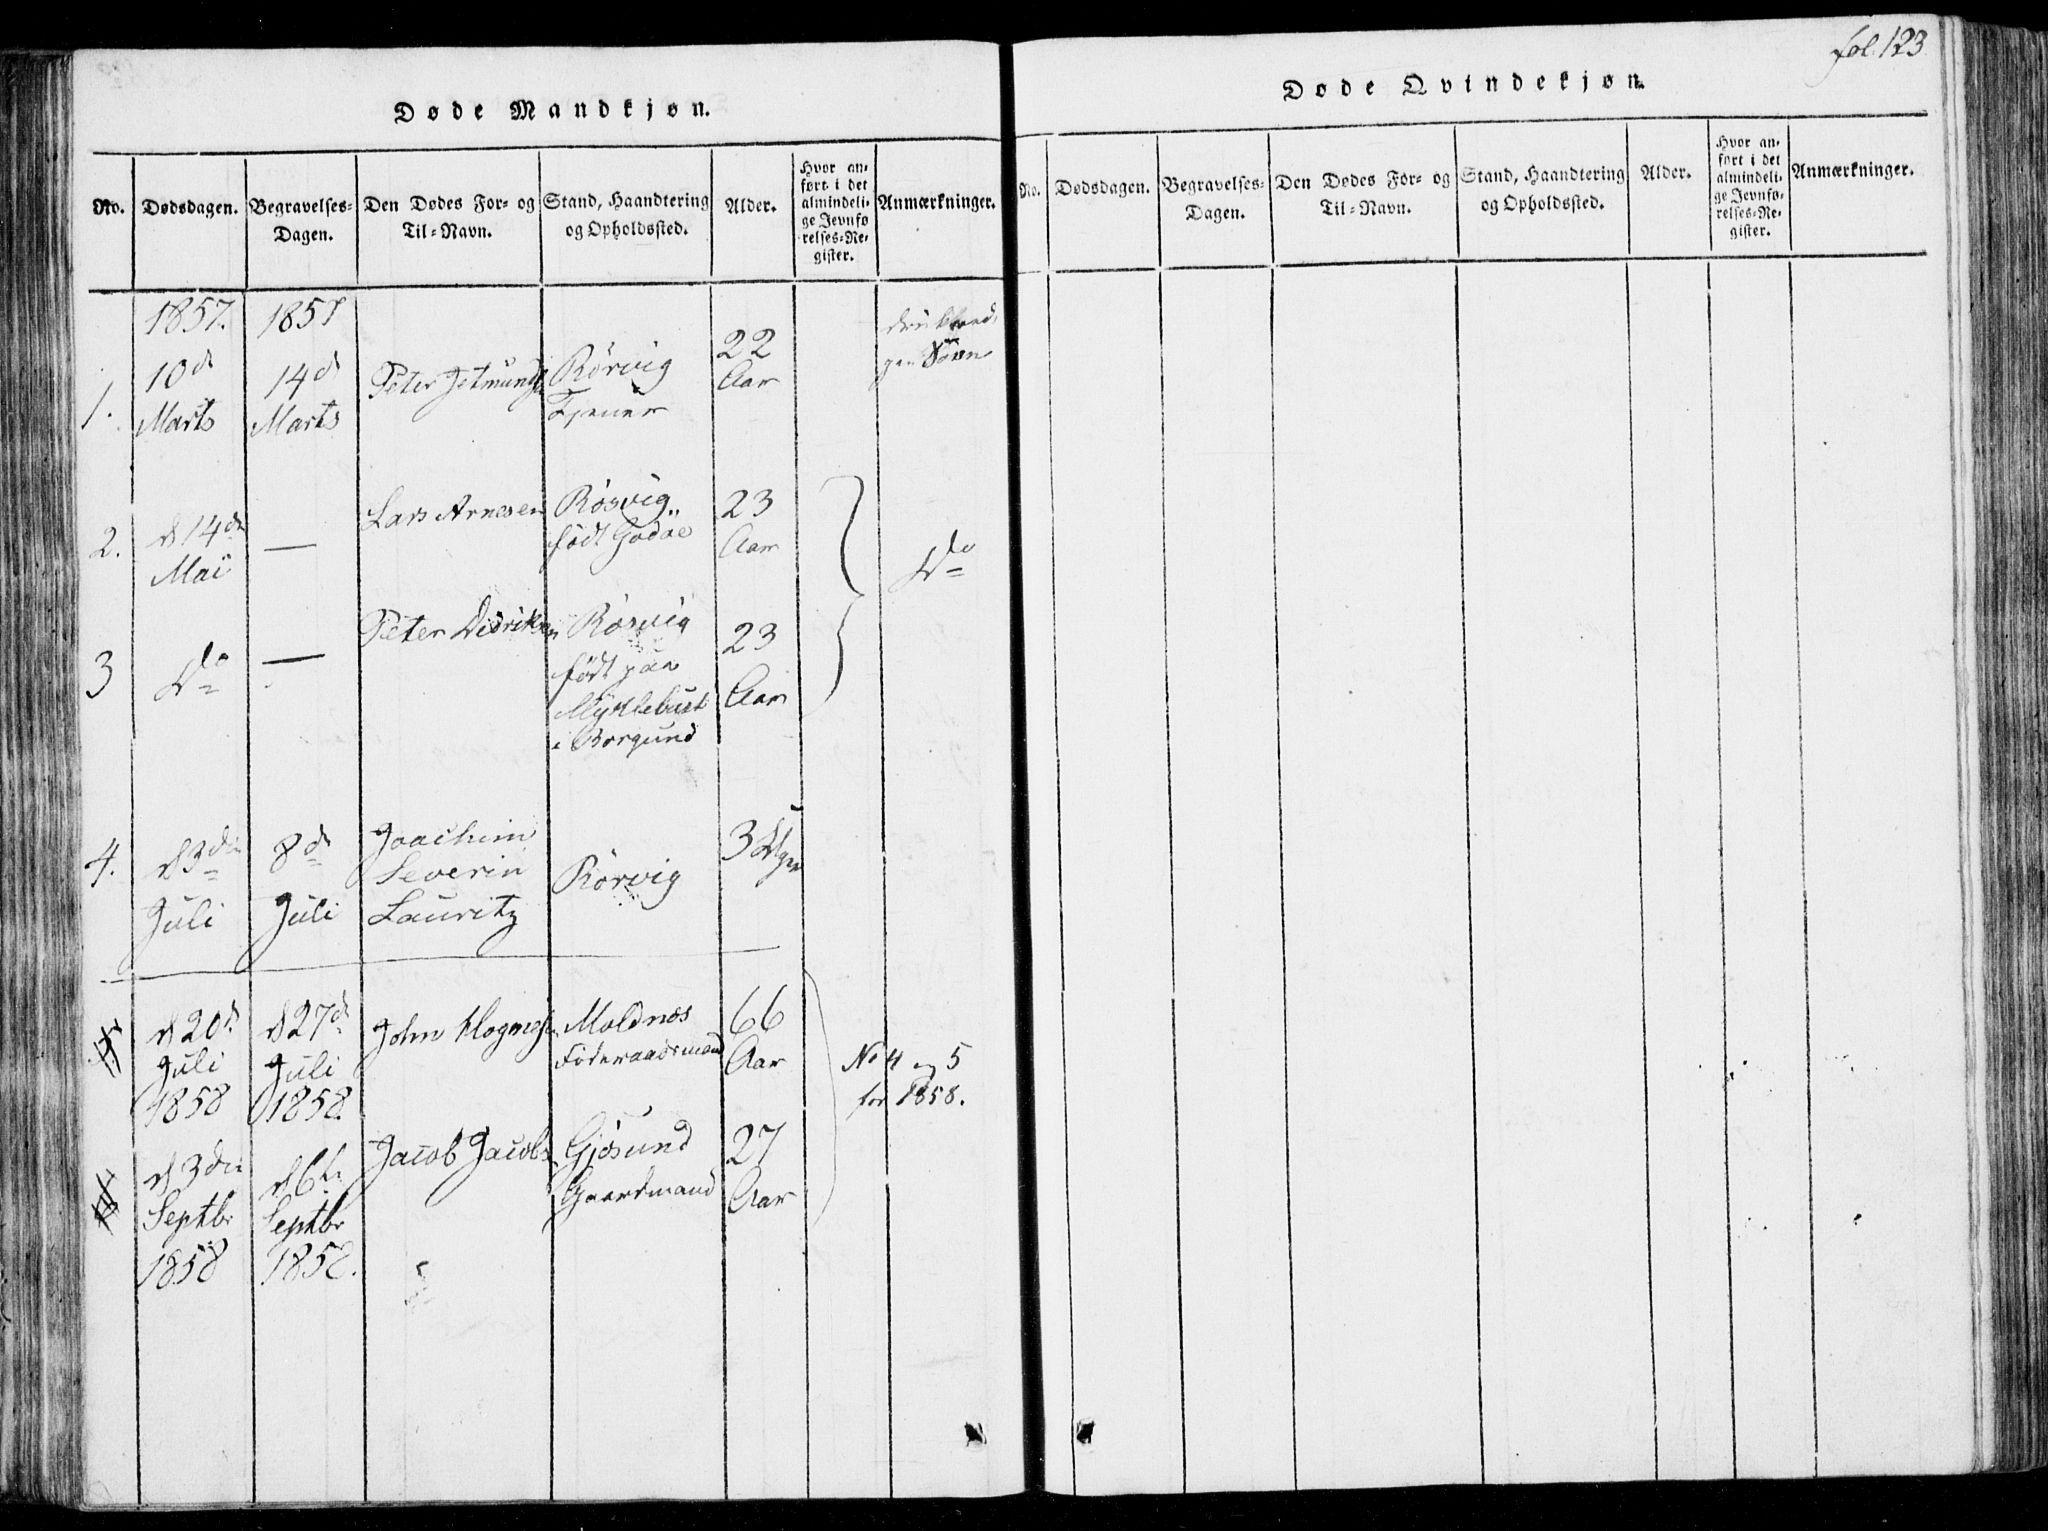 fol. 123
Døde Mandkjøn.
No.
Dødsdagen.
Begravelses-
Dagen.
Den Dødes For- og
Til-Navn.
Stand, Haandtering
og Opholdssted.
Alder.
Hvor an-
ført i det
almindeli-
ge Jevnfø
relses-Re-
gister.
Anmærkninger.
1.
1857.
10d
Marts
1857
14d
Marts
Peter Jetmunds
Rörvig
Tjener
22
Aar
Søen
2.
d 14de
Mai
—
Lars Arnesen
Rörvig
födt Godøe
23
Aar
Do
3
Do
—
Peter Didriksen
Rörvig
födt paa
Myklebust
i Borgund
23
Aar
4.
d 3die
Juli
8d
Juli
Joachim
Severin
Lauritz
Rörvig
3
d 20d
Juli
1858
d 27d
Juli
1858.
John Mognes
Moldnæs
Föderaadsmand
66
Aar
No 4 og 5
for 1858.
d 3die
Septbr
1858
d 6te
Septbr
1858.
Jacob Jacobs
Gjösund
Gaardmand
27
Aar
Døde Qvindekjøn.
No.
Dødsdagen.
Begravelses-
Dagen.
Den Dødes For- og
Til-Navn.
Stand, Haandtering
og Opholdssted.
Alder.
Hvor an-
ført i det
almindeli-
ge Jevnfø-
relses-Re-
gister.
Anmærkninger.